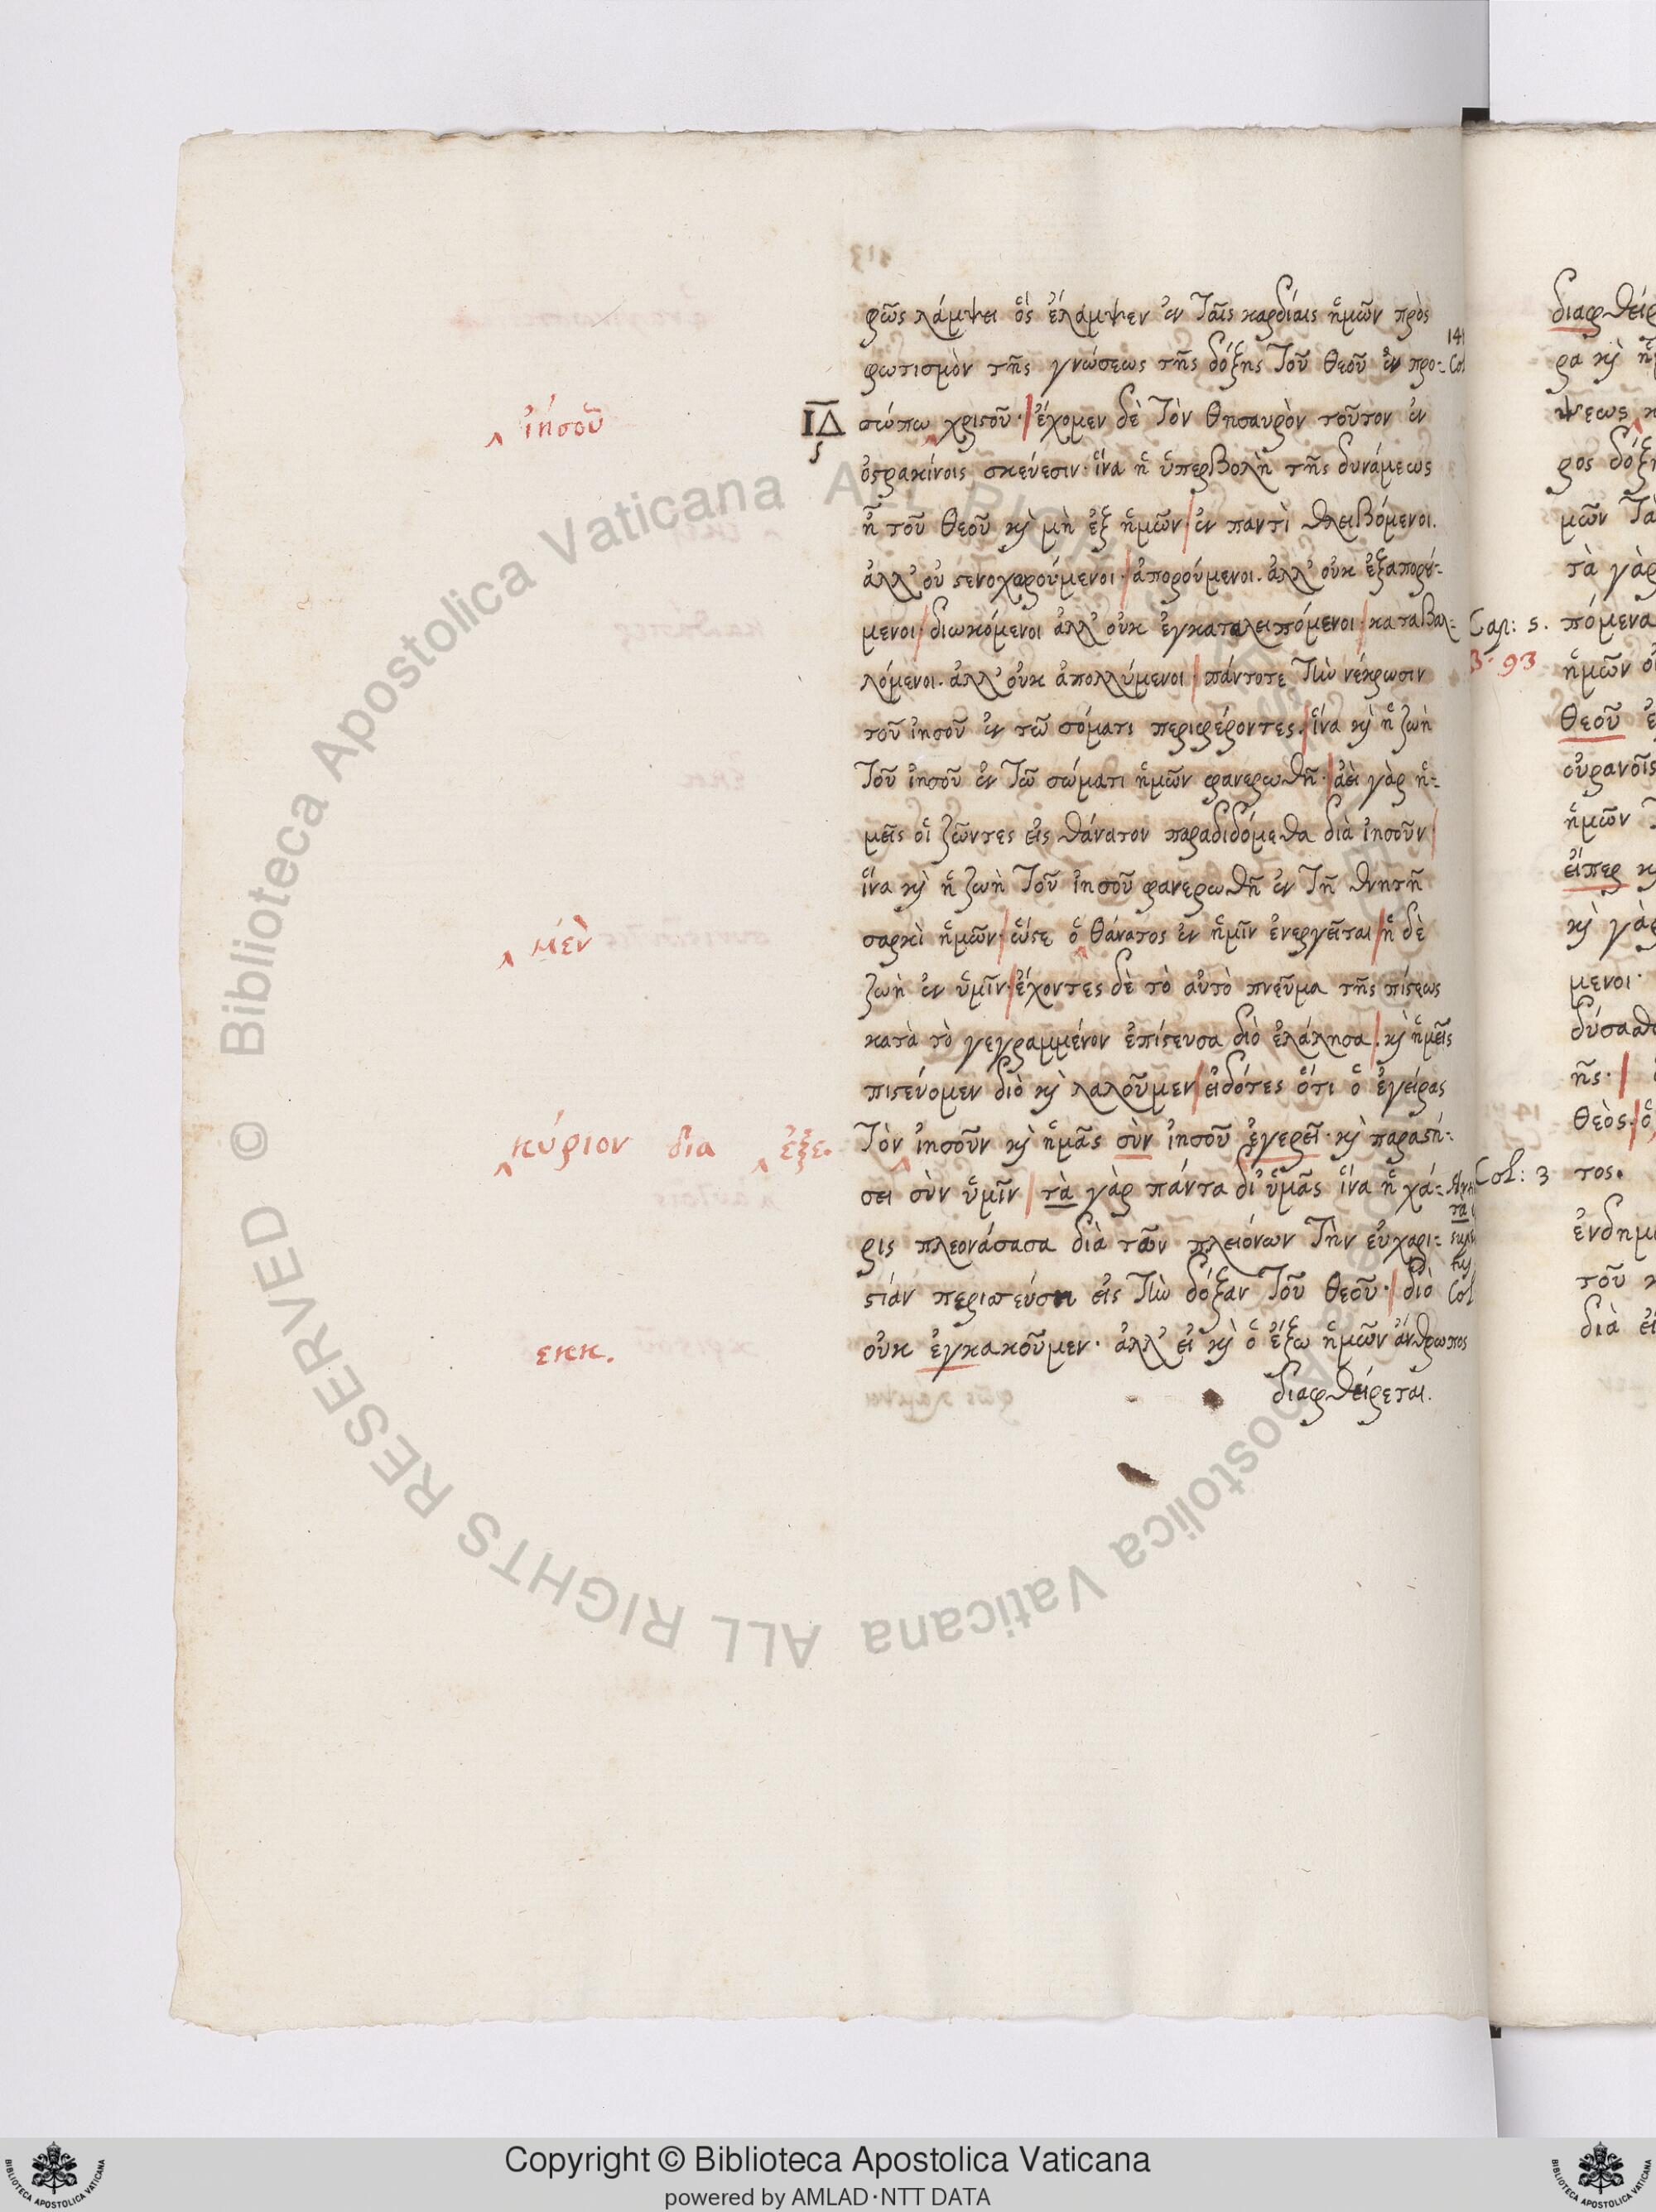 φῶς λάμψει ὃς ἔλαμψεν ἐν ταῖς καρδίαις ἡμῶν πρὸς
φωτισμὸν τῆς γνώσεως τῆς δόξης τοῦ θεοῦ ἐν προ-
ἰησοῦ
ΙΔ σώπω χριστοῦ· ἔχομεν δὲ τὸν θησαυρὸν τοῦτον ἐν
ὀστρακίνοις σκεύεσιν· ἵνα ἡ ὑπερβολὴ τῆς δυνάμεως
ἦ τοῦ θεοῦ καὶ μὴ ἐξ ἡμῶν ἐν παντὶ θλειβόμενοι.
ἀλλ' οὐ στενοχωρούμενοι· ἀπορούμενοι. ἀλλ' οὐκ ἐξαπορού-
μενοι διωκόμενοι ἀλλ' οὐκ ἐγκαταλειπόμενοι· καταβαλ-
λόμενοι. ἀλλ' οὐκ ἀπολλύμενοι πάντοτε τὴν νέκρωσιν
τοῦ ἰησοῦ ἐν τῶ σόματι περιφέροντες· ἵνα καὶ ἡ ζωὴ
τοῦ ἰησοῦ ἐν τῶ σώματι ἡμῶν φανερωθῆ· ἀεὶ γὰρ ἡ-
μεῖς οἱ ζῶντες εἰς θάνατον παραδιδόμεθα διὰ ἰησοῦν
ἵνα καὶ ἡ ζωὴ τοῦ ἰησοῦ φανερωθῆ ἐν τῆ θνητῆ
μὲν
σαρκὶ ἡμῶν· ὥστε ὁ θάνατος ἐν ἡμῖν ἐνεργεῖται ἡ δὲ
ζωὴ ἐν ὑμῖν· ἔχοντες δὲ τὸ αὐτὸ πνεῦμα τῆς πίστεως
κατὰ τὸ γεγραμμένον ἐπίστευσα διὸ ἐλάλησα. καὶ ἡμεῖς
πιστεύομεν διὸ καὶ λαλοῦμεν εἰδότες ὅτι ὁ ἐγείρας
κύριον δια ἐξε.
τὸν ἰησοῦν καὶ ἡμᾶς σὺν ἰησοῦ ἐγερεῖ· καὶ παραστή-
σει σὺν ὑμῖν τὰ γὰρ πάντα δι' ὑμᾶς ἵνα ἡ χά-
ρις πλεονάσασα διὰ τῶν πλειόνων τὴν εὐχαρι-
στίαν περισεύση εἰς τὴν δόξαν τοῦ θεοῦ· διὸ
εκκ.
οὐκ ἐγκακοῦμεν· ἀλλ' εἰ καὶ ὁ ἔξω ἡμῶν ἄνθρωπος
διαφθείρεται.
Cap: 5.
93
Col: 3
πόμενα
ἡμῶν
θεοῦ
οὐρανοῖς
ἡμῶν
εἴπερ
καὶ γὰρ
μενοι·
θεὸς·
τος.
διὰ
Copyright © Biblioteca Apostolica Vaticana
powered by AMLAD·NTT DATA
© Biblioteca Apostolica Vaticana ALL RIGHTS RESERVED
© Biblioteca Apostolica Vaticana ALL RIGHTS RESERVED
BIBLIOTECA APOSTOLICA VATICANA
BIBLIOTECA APOSTOLICA VATICANA